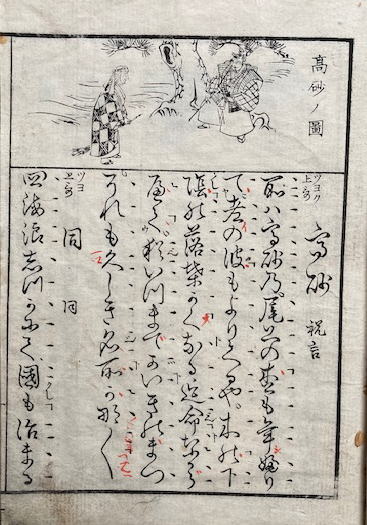 高砂ノ圖
ツヨク
高砂 祝言
所ハ高砂乃尾上の松も年婦り
て老の波もよりくるや。木の下
陰の落葉かくなる迄命なから
へて猶いつまてかいきのまつ
それも久しき名所か那〱
ツヨ
同 同
四海波志つかにて國も治まる